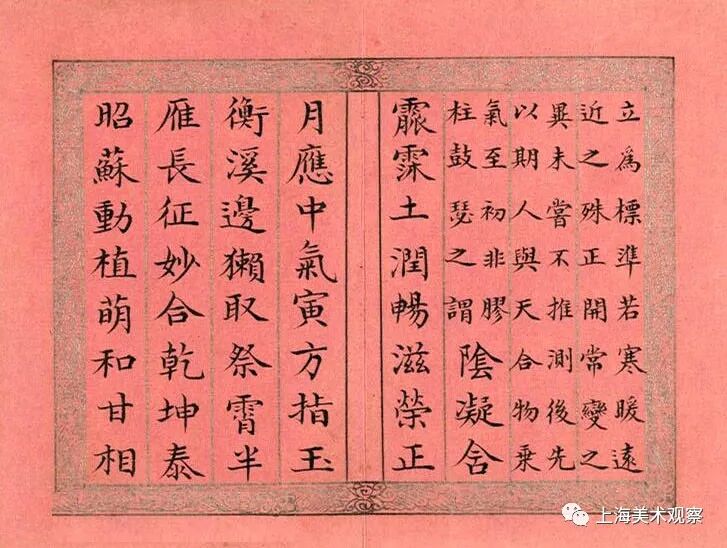 立為標準若寒暖遠
近之殊正開常變之
異未嘗不推測後先
以期人與天合物乘
氣至初非膠
柱鼓瑟之謂
陰凝舍
霢霂土潤暢滋榮正
月應中氣寅方指玉
衡溪邊獺取祭霄半
雁長征妙合乾坤泰
昭蘇動植萌和甘相
上海美术观察